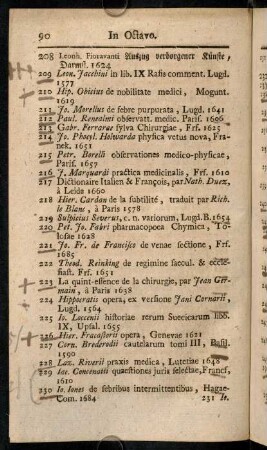 90 In Octavo.
208 Leonh. Fioravanti Auszug verborgener Künste,
Darmst. 1624
209 Leon. Jacchini in lib. IX Rasis comment. Lugd.
1577
210 Hip. Obicius de nobilitate medici, Mogunt.
1619
211 Jo. Morellus de febre purpurata, Lugd. 1641
212 Paul. Renealmi observatt. medic. Paris. 1606
213 Gabr. Ferraras sylva Chirurgiae, Frf. 1625
214 Jo. Phocyl. Holwarda physica vetus nova, Fra-
nek. 1651
215 Petr. Borelli observationes medico-physicae,
Paris. 1657
216 J. Marquardi practica medicinalis, Frf. 1610
217 Dictionaire Italien & François, par Nath. Duez,
à Leide 1660
218 Hier. Cardan de la subtilité, traduit par Rich.
le Blanc, à Paris 1578
219 Sulpicius Severus, c. n. variorum, Lugd. B. 1654
220 Pet. Jo. Fabri pharmacopoea Chymica, To-
losae 1628
221 Jo. Fr. de Francisco de venae sectione, Frf.
1685
222 Theod. Reinking de regimine saecul. & eccle-
siast. Frf. 1651
223 La quint-essence de la chirurgie, par Jean Ger-
main, à Paris 1638
224 Hippocratis opera, ex versione Jani Cornarii,
Lugd. 1564
225 Jo. Loccenii historiae rerum Suecicarum libb.
IX, Upsal. 1655
226 Hier. Fracastorii opera, Genevae 1621
227 Corn. Brederodii cautelarum tomi III, Basil.
1590
228 Laz. Riverii praxis medica, Lutetiae 1648
229 Joc. Concenatii quaestiones juris selectae, Francf,
1610
230 Jo. Jones de febribus intermittentibus, Hagae-
Com. 1684 231 Jr.